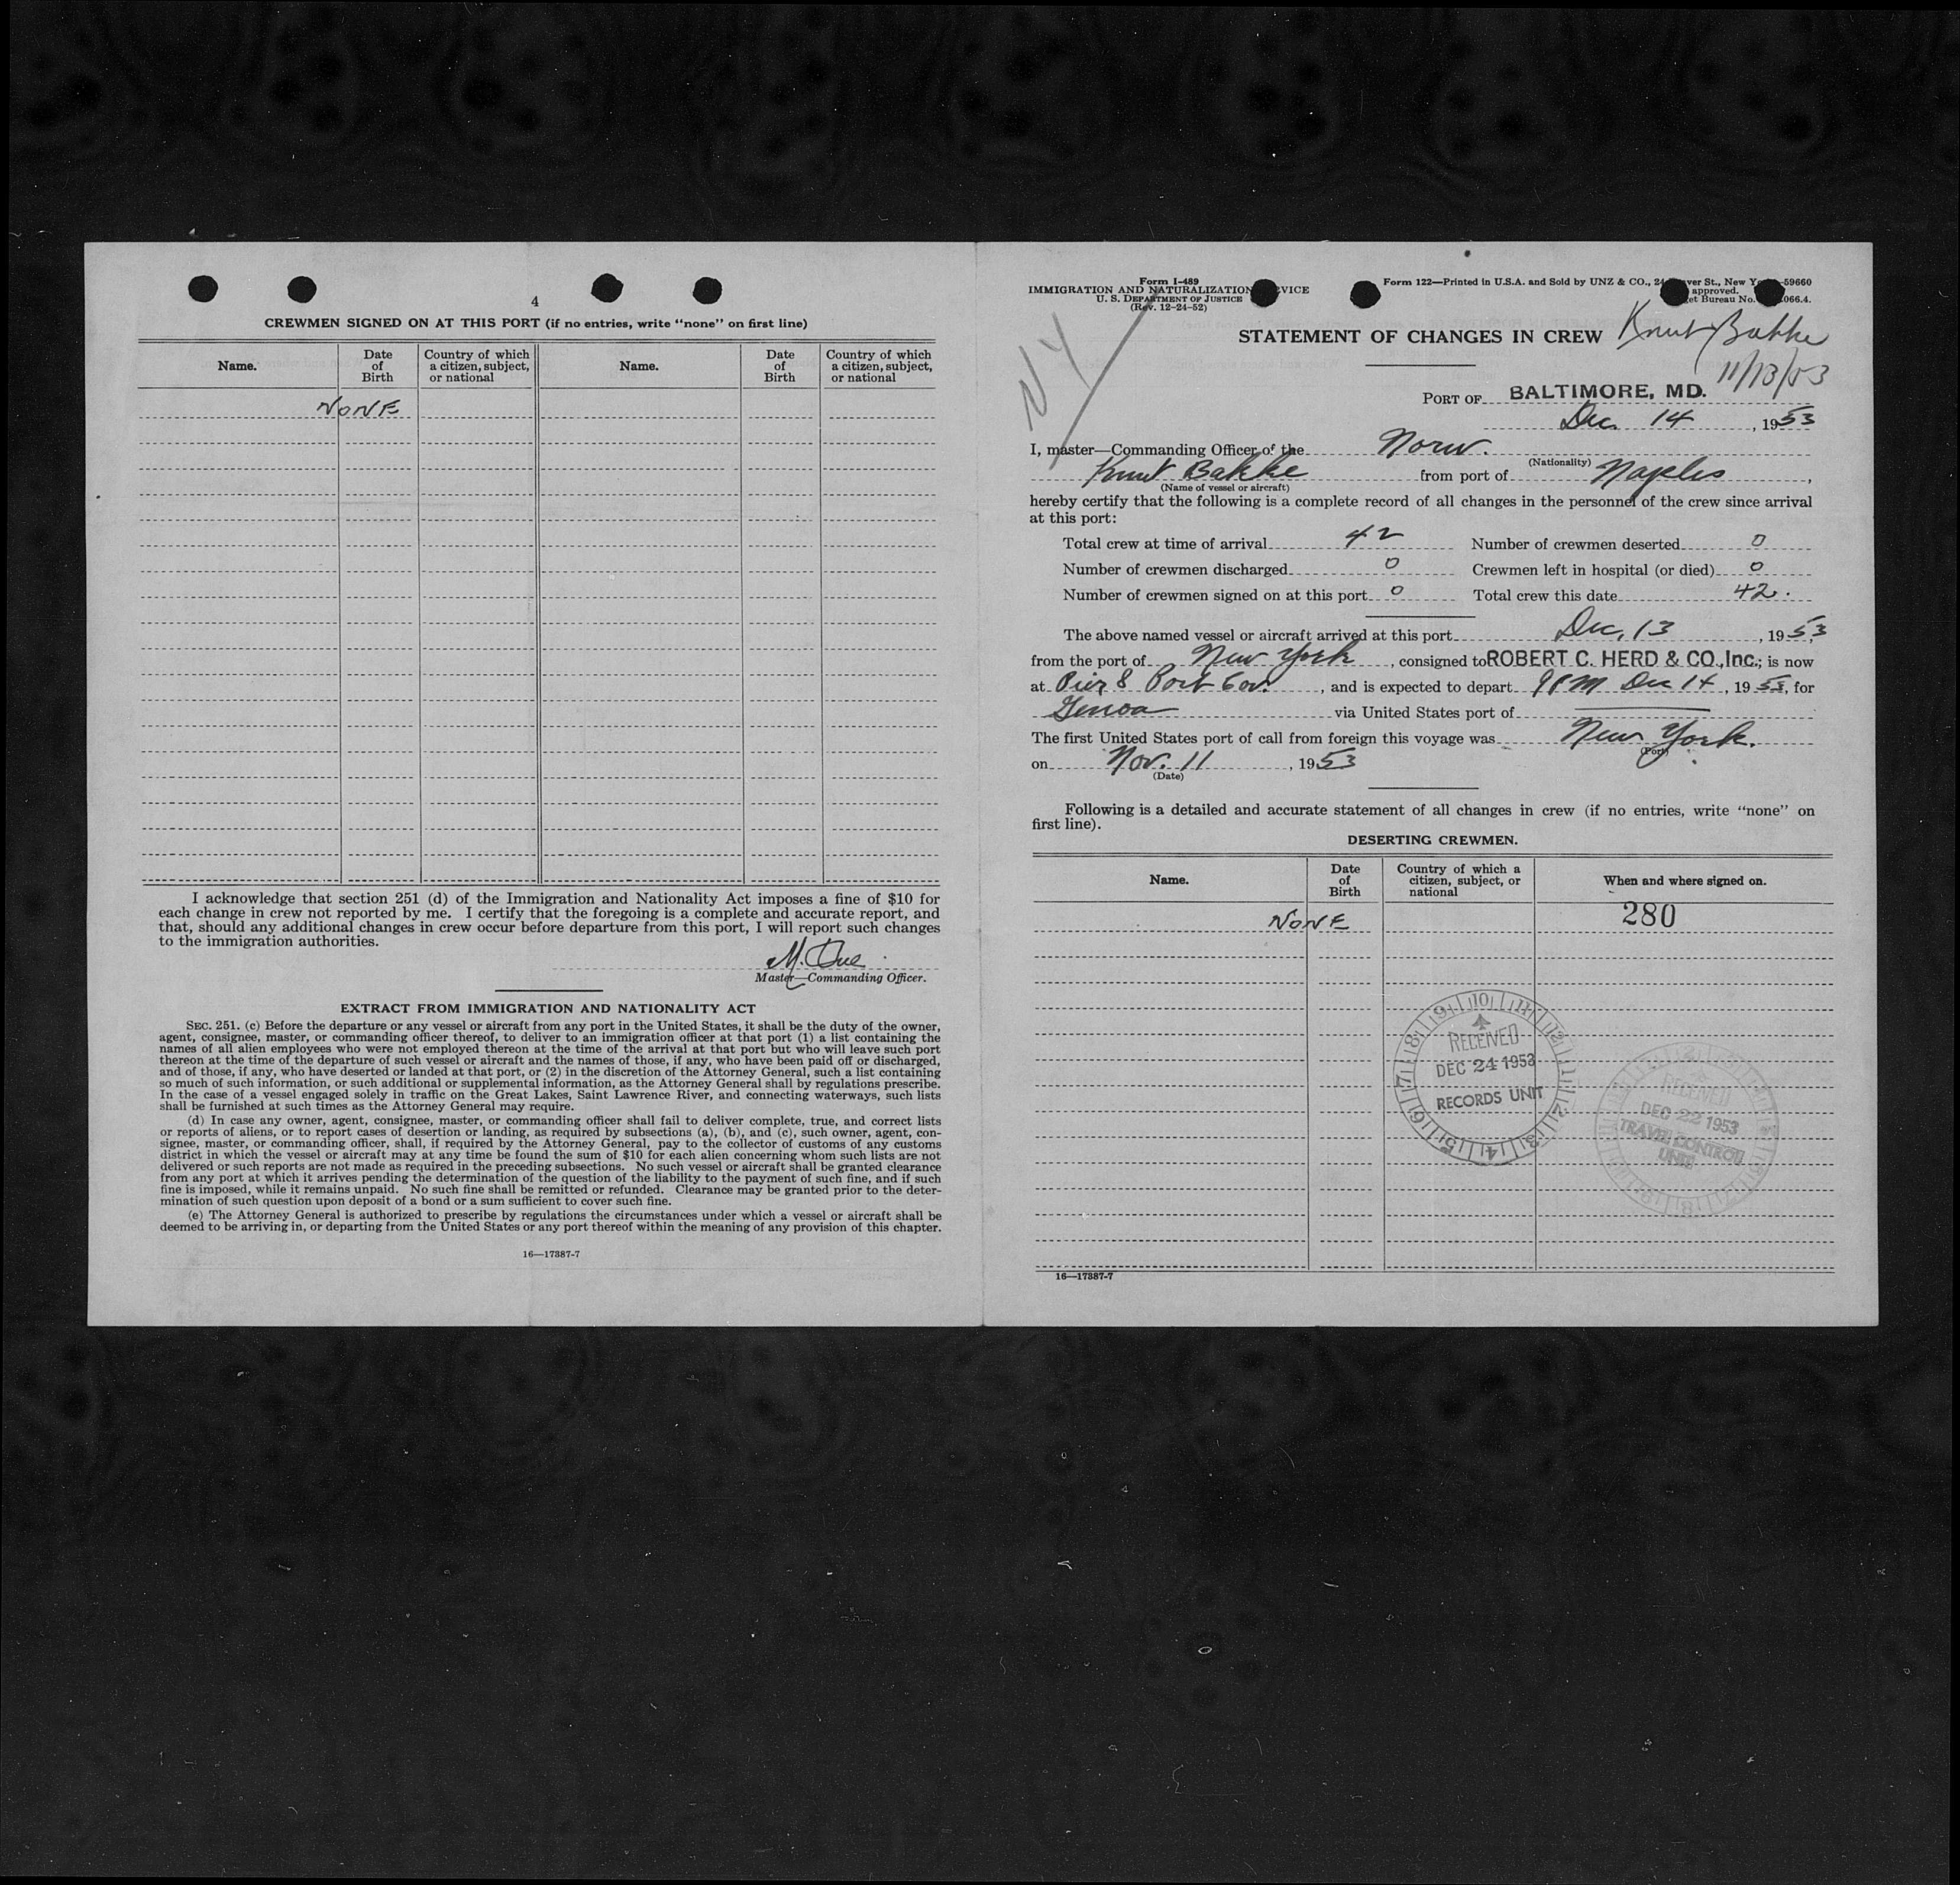 4
CREWMEN SIGNED ON AT THIS PORT (if no entries, write “none” on first line)
Name. Date of Birth Country of which a citizen, subject, or national Name. Date of Birth Country of which a citizen, subject, or national
NONE
I acknowledge that section 251 (d) of the Immigration and Nationality Act imposes a fine of $10 for
each change in crew not reported by me. I certify that the foregoing is a complete and accurate report, and
that, should any additional changes in crew occur before departure from this port, I will report such changes
to the immigration authorities.
M.
Master—Commanding Officer.
EXTRACT FROM IMMIGRATION AND NATIONALITY ACT
SEC. 251. (c) Before the departure or any vessel or aircraft from any port in the United States, it shall be the duty of the owner,
agent, consignee, master, or commanding officer thereof, to deliver to an immigration officer at that port (1) a list containing the
names of all alien employees who were not employed thereon at the time of the arrival at that port but who will leave such port
thereon at the time of the departure of such vessel or aircraft and the names of those, if any, who have been paid off or discharged,
and of those, if any, who have deserted or landed at that port, or (2) in the discretion of the Attorney General, such a list containing
so much of such information, or such additional or supplemental information, as the Attorney General shall by regulations prescribe.
In the case of a vessel engaged solely in traffic on the Great Lakes, Saint Lawrence River, and connecting waterways, such lists
shall be furnished at such times as the Attorney General may require.
(d) In case any owner, agent, consignee, master, or commanding officer shall fail to deliver complete, true, and correct lists
or reports of aliens, or to report cases of desertion or landing, as required by subsections (a), (b), and (c), such owner, agent, con-
signee, master, or commanding officer, shall, if required by the Attorney General, pay to the collector of customs of any customs
district in which the vessel or aircraft may at any time be found the sum of $10 for each alien concerning whom such lists are not
delivered or such reports are not made as required in the preceding subsections. No such vessel or aircraft shall be granted clearance
from any port at which it arrives pending the determination of the question of the liability to the payment of such fine, and if such
fine is imposed, while it remains unpaid. No such fine shall be remitted or refunded. Clearance may be granted prior to the deter-
mination of such question upon deposit of a bond or a sum sufficient to cover such fine.
(e) The Attorney General is authorized to prescribe by regulations the circumstances under which a vessel or aircraft shall be
deemed to be arriving in, or departing from the United States or any port thereof within the meaning of any provision of this chapter.
16—17387-7
Form I-489
IMMIGRATION AND NATURALIZATION SERVICE
U. S. DEPARTMENT OF JUSTICE
(Rev. 12-24-52)
Form 122—Printed in U.S.A. and Sold by UNZ & CO., 24 St., New 59660
approved.
Bureau No. 066.4.
NY
STATEMENT OF CHANGES IN CREW Knut Bakke
11/13/53
PORT OF BALTIMORE, MD.
Dec. 14, 1953
I, master—Commanding Officer of the Norw.
(Nationality)
Knut Bakke from port of Naples,
(Name of vessel or aircraft)
hereby certify that the following is a complete record of all changes in the personnel of the crew since arrival
at this port:
Total crew at time of arrival 42 Number of crewmen deserted 0
Number of crewmen discharged 0 Crewmen left in hospital (or died) 0
Number of crewmen signed on at this port 0 Total crew this date 42.
The above named vessel or aircraft arrived at this port Dec, 13, 1953,
from the port of New York, consigned to ROBERT C. HERD & CO., Inc.; is now
at Pier 8 Port Cov., and is expected to depart 9 PM Dec 14, 1953, for
Genoa via United States port of
The first United States port of call from foreign this voyage was New York.
(Port)
on Nov. 11, 1953
(Date)
Following is a detailed and accurate statement of all changes in crew (if no entries, write “none” on
first line).
DESERTING CREWMEN.
Name. Date of Birth Country of which a citizen, subject, or national When and where signed on.
NONE 280
10 11 12 1 2 3 4 5 6 7 8 9
RECEIVED
DEC 24 1953
RECORDS UNIT
RECEIVED
DEC 22 1953
TRAVEL CONTROL
UNIT
16—17387-7